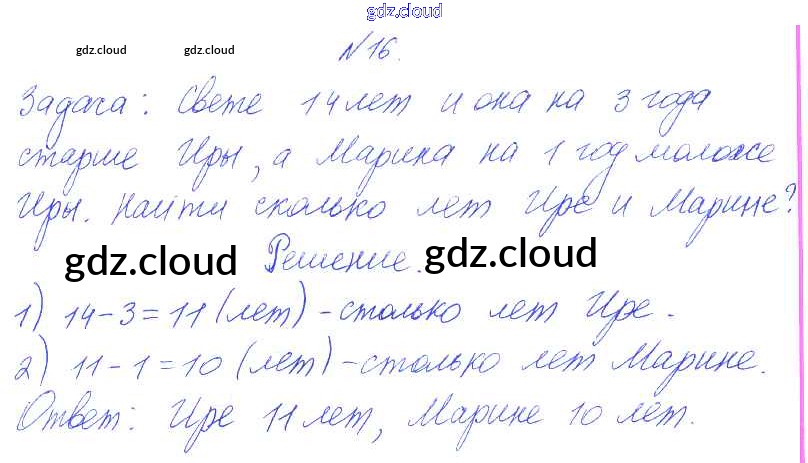 gdz.cloud
gdz.cloud gdz.cloud №16.
Задача: Свете 14 лет и она на 3 года
старше Иры, а Марина на 1 год моложе
Иры. Найти сколько лет Ире и Марине?
gdz.cloud Решение. gdz.cloud
1) 14-3=11 (лет) - столько лет Ире.
2) 11-1=10 (лет) - столько лет Марине.
Ответ: Ире 11 лет, Марине 10 лет.